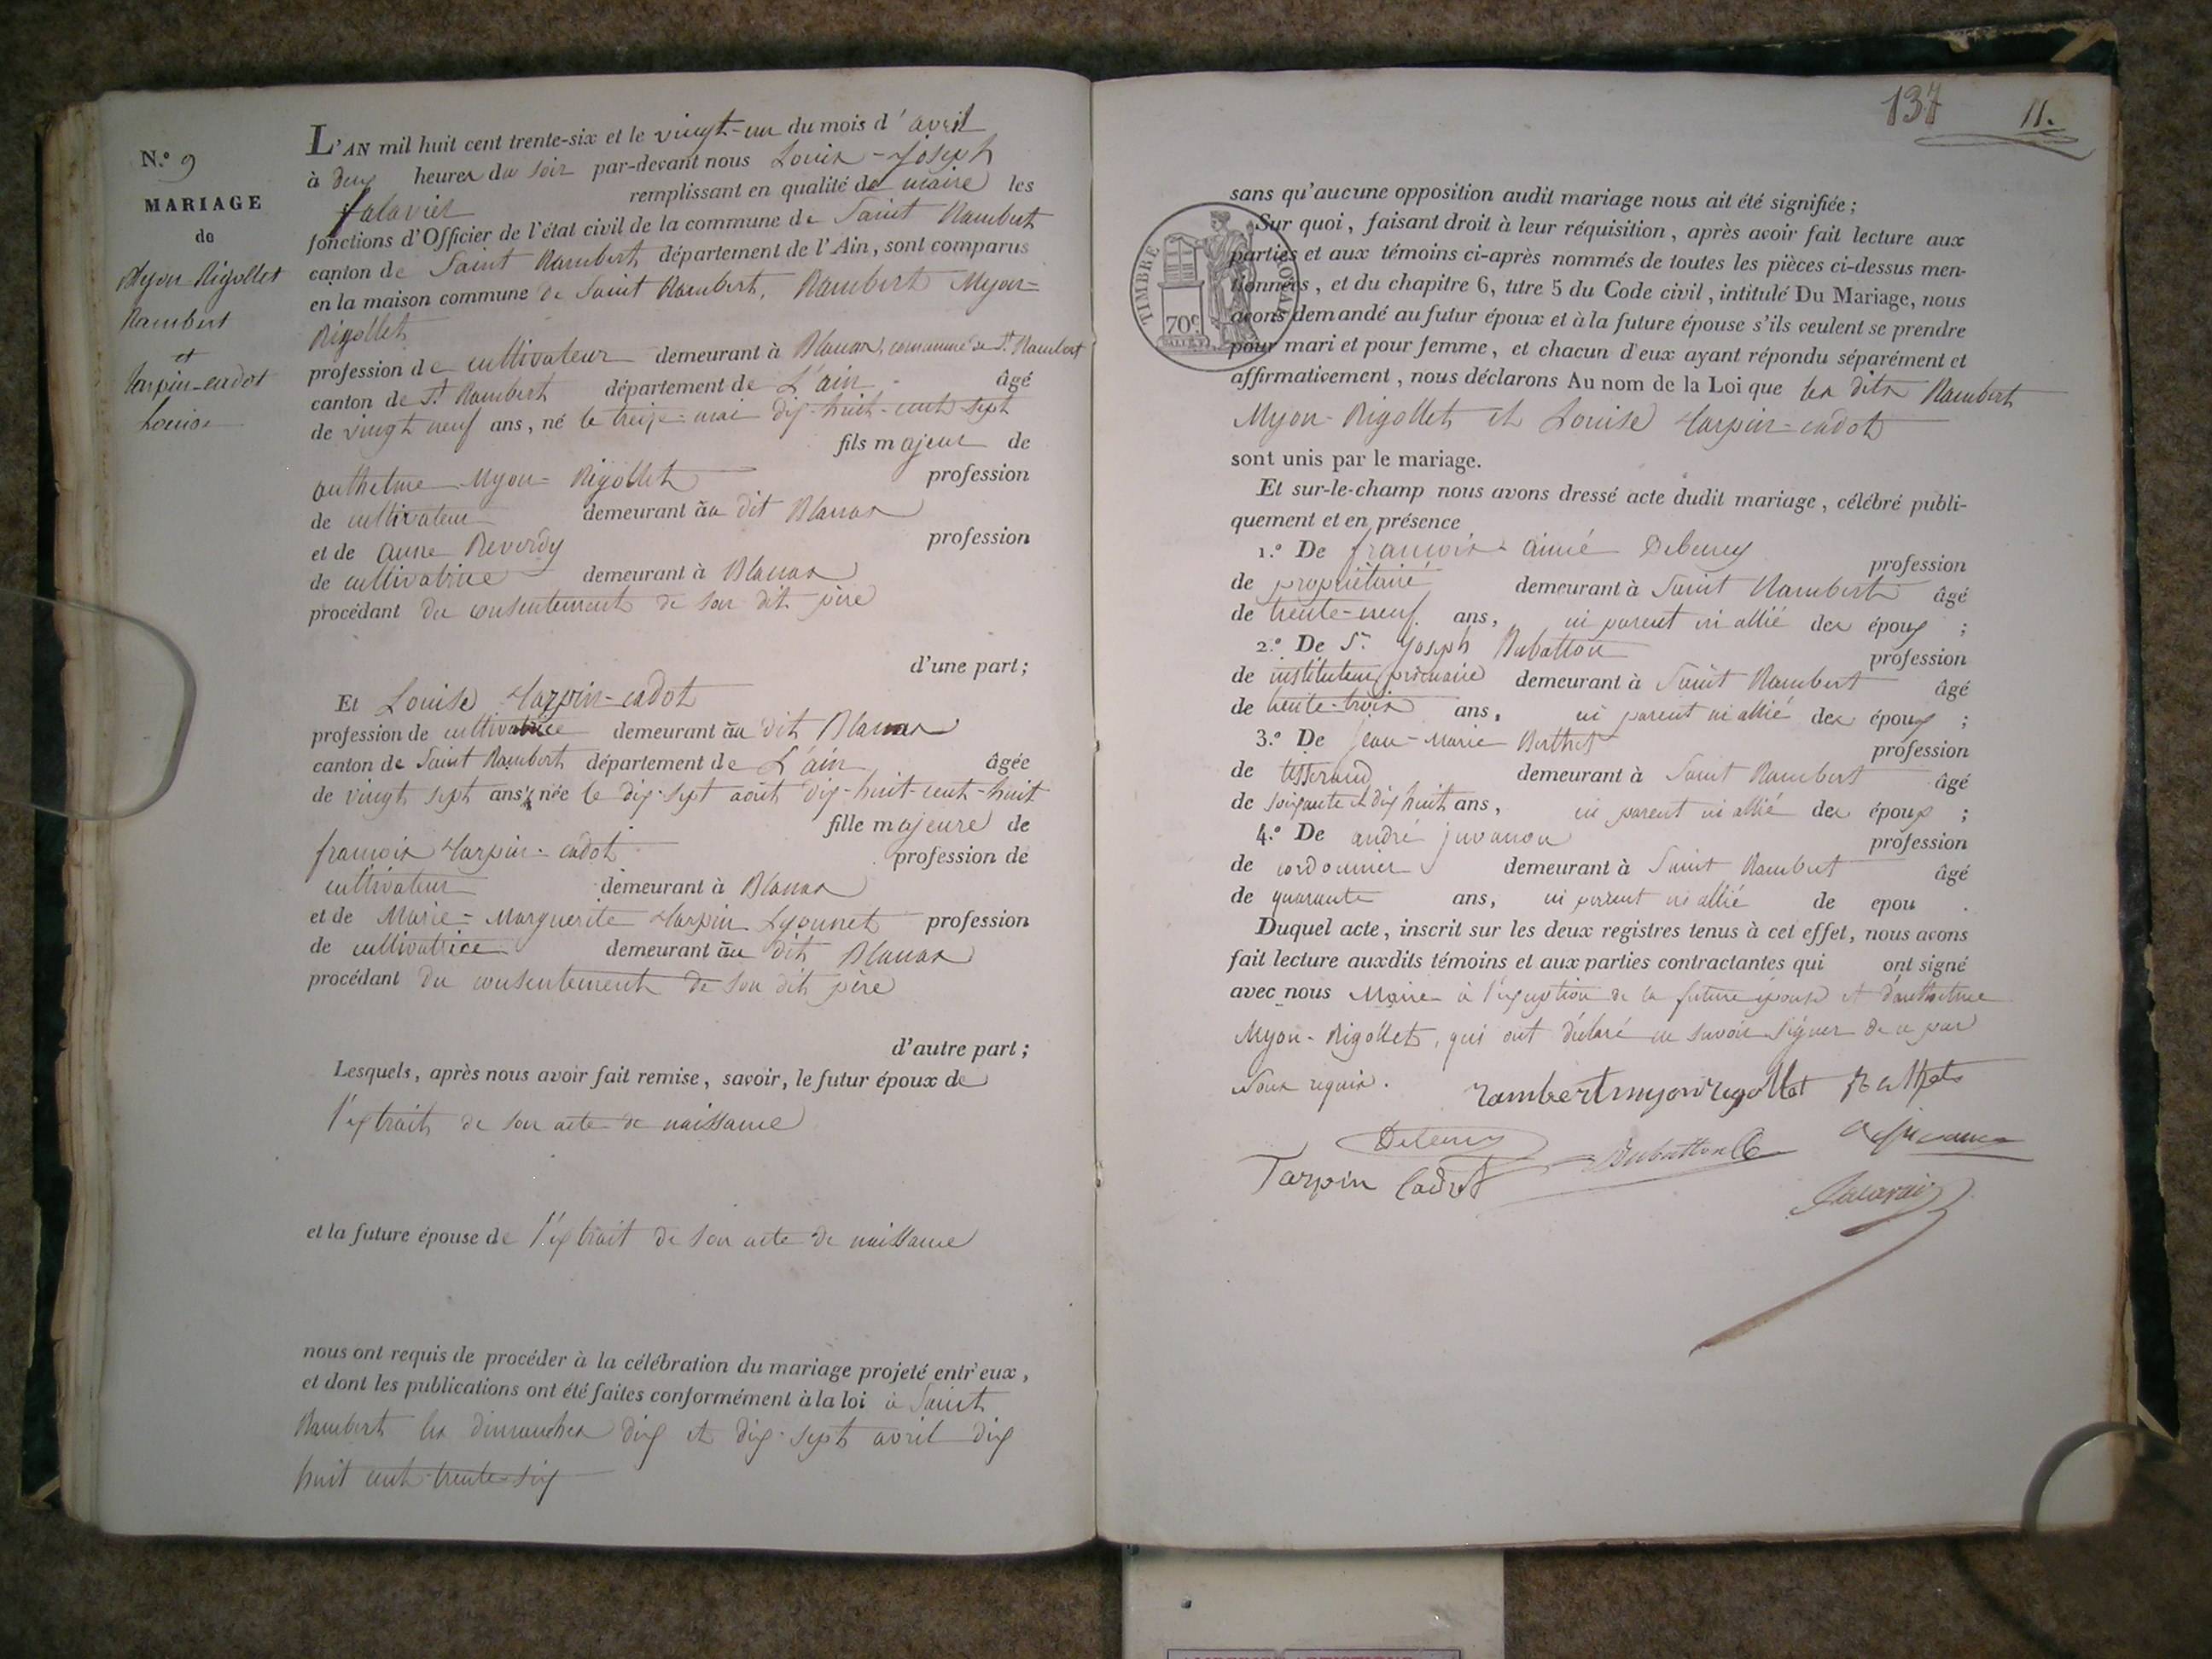 N.º 9
MARIAGE
de
Myon Rigollet
Rambert
et
tarpin-cadot
Louise
L'AN mil huit cent trente-six et le vingt-un du mois d'avril
à deux heures du soir par-devant nous Louis-Joseph
remplissant en qualité de maire les
fonctions d'Officier de l'état civil de la commune de Saint Rambert
canton de Saint Rambert département de l'Ain, sont comparus
en la maison commune de Saint Rambert, Rambert Myon=
Rigollet
profession de cultivateur demeurant à Blanas, commune de St. Rambert
canton de St. Rambert département de L'ain âgé
de vingt neuf ans, né le treize mai dix-huit-cent-sept
fils majeur de
anthelme Myon=Rigollet profession
de cultivateur demeurant au dit Blanas
et de anne Reverdy profession
de cultivatrice demeurant à Blanas
procédant du consentement de son dit père
d'une part;
Et Louise tarpin-cadot
profession de cultivatrice demeurant au dit Blanas
canton de Saint Rambert département de L'ain âgée
de vingt sept ans, née le dix-sept août dix-huit-cent-huit
fille majeure de
françois tarpin-cadot profession de
cultivateur demeurant à Blanas
et de Marie=Marguerite tarpin Lyonnet profession
de cultivatrice demeurant au dit Blanas
procédant du consentement de son dit père
d'autre part;
Lesquels, après nous avoir fait remise, savoir, le futur époux de
l'extrait de son acte de naissance
et la future épouse de l'extrait de son acte de naissance
nous ont requis de procéder à la célébration du mariage projeté entr'eux,
et dont les publications ont été faites conformément à la loi à Saint
Rambert les dimanches dix et dix-sept avril dix
huit cent-trente-six
137 11.
TIMBRE ROYAL
70c
sans qu'aucune opposition audit mariage nous ait été signifiée;
Sur quoi, faisant droit à leur réquisition, après avoir fait lecture aux
parties et aux témoins ci-après nommés de toutes les pièces ci-dessus men-
tionnées, et du chapitre 6, titre 5 du Code civil, intitulé Du Mariage, nous
avons demandé au futur époux et à la future épouse s'ils veulent se prendre
pour mari et pour femme, et chacun d'eux ayant répondu séparément et
affirmativement, nous déclarons Au nom de la Loi que les dits Rambert
Myon-Rigollet et Louise tarpin-cadot
sont unis par le mariage.
Et sur-le-champ nous avons dressé acte dudit mariage, célébré publi-
quement et en présence
1.º De françois-aimé Debeney profession
de propriétaire demeurant à Saint Rambert âgé
de trente-neuf ans, ni parent ni allié des époux ;
2.º De Sr. Joseph Dubatton profession
de instituteur primaire demeurant à Saint Rambert âgé
de trente-trois ans, ni parent ni allié des époux ;
3.º De Jean-Marie Berthet profession
de tisserand demeurant à Saint Rambert âgé
de soixante et dix huit ans, ni parent ni allié des époux ;
4.º De andré juvanon profession
de cordonnier demeurant à Saint Rambert âgé
de quarante ans, ni parent ni allié de epou .
Duquel acte, inscrit sur les deux registres tenus à cet effet, nous avons
fait lecture auxdits témoins et aux parties contractantes qui ont signé
avec nous Maire à l'exception de la future épouse et d'anthelme
Myon-Rigollet, qui ont déclaré ne savoir signer de ce par
Nous requis.
rambert myon rigollat Berthet
Debeney
Tarpin Cadot Dubatton